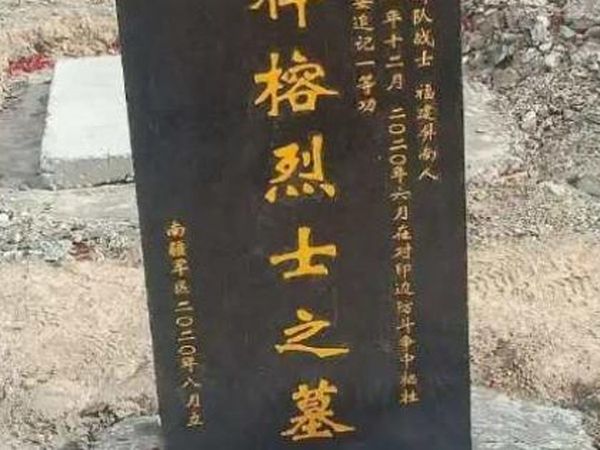 队战士 福建屏南人
年十二月 二〇二〇年六月在对印边防斗争中牺牲
委追记一等功
榕烈士之墓
南疆军区二〇二〇年八月立